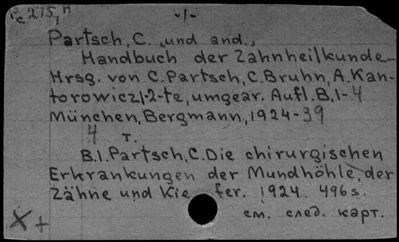 Pc 275, M
-1-
Partsch, C. und and.,
Handbuch der Zahnheilkunde...
Hrsg. von C. Partsch, C. Bruhn, A. Kan-
torowicz, 1.2-te, umgear. Aufl. B, 1-4
München, Bergmann, 1924-39
4 т.
B.1. Partsch, C. Die chirurgischen
Erkrankungen der Mundhöhle, der
Zähne und Kiefer. 1924. 496 s.
X+ см. след. карт.